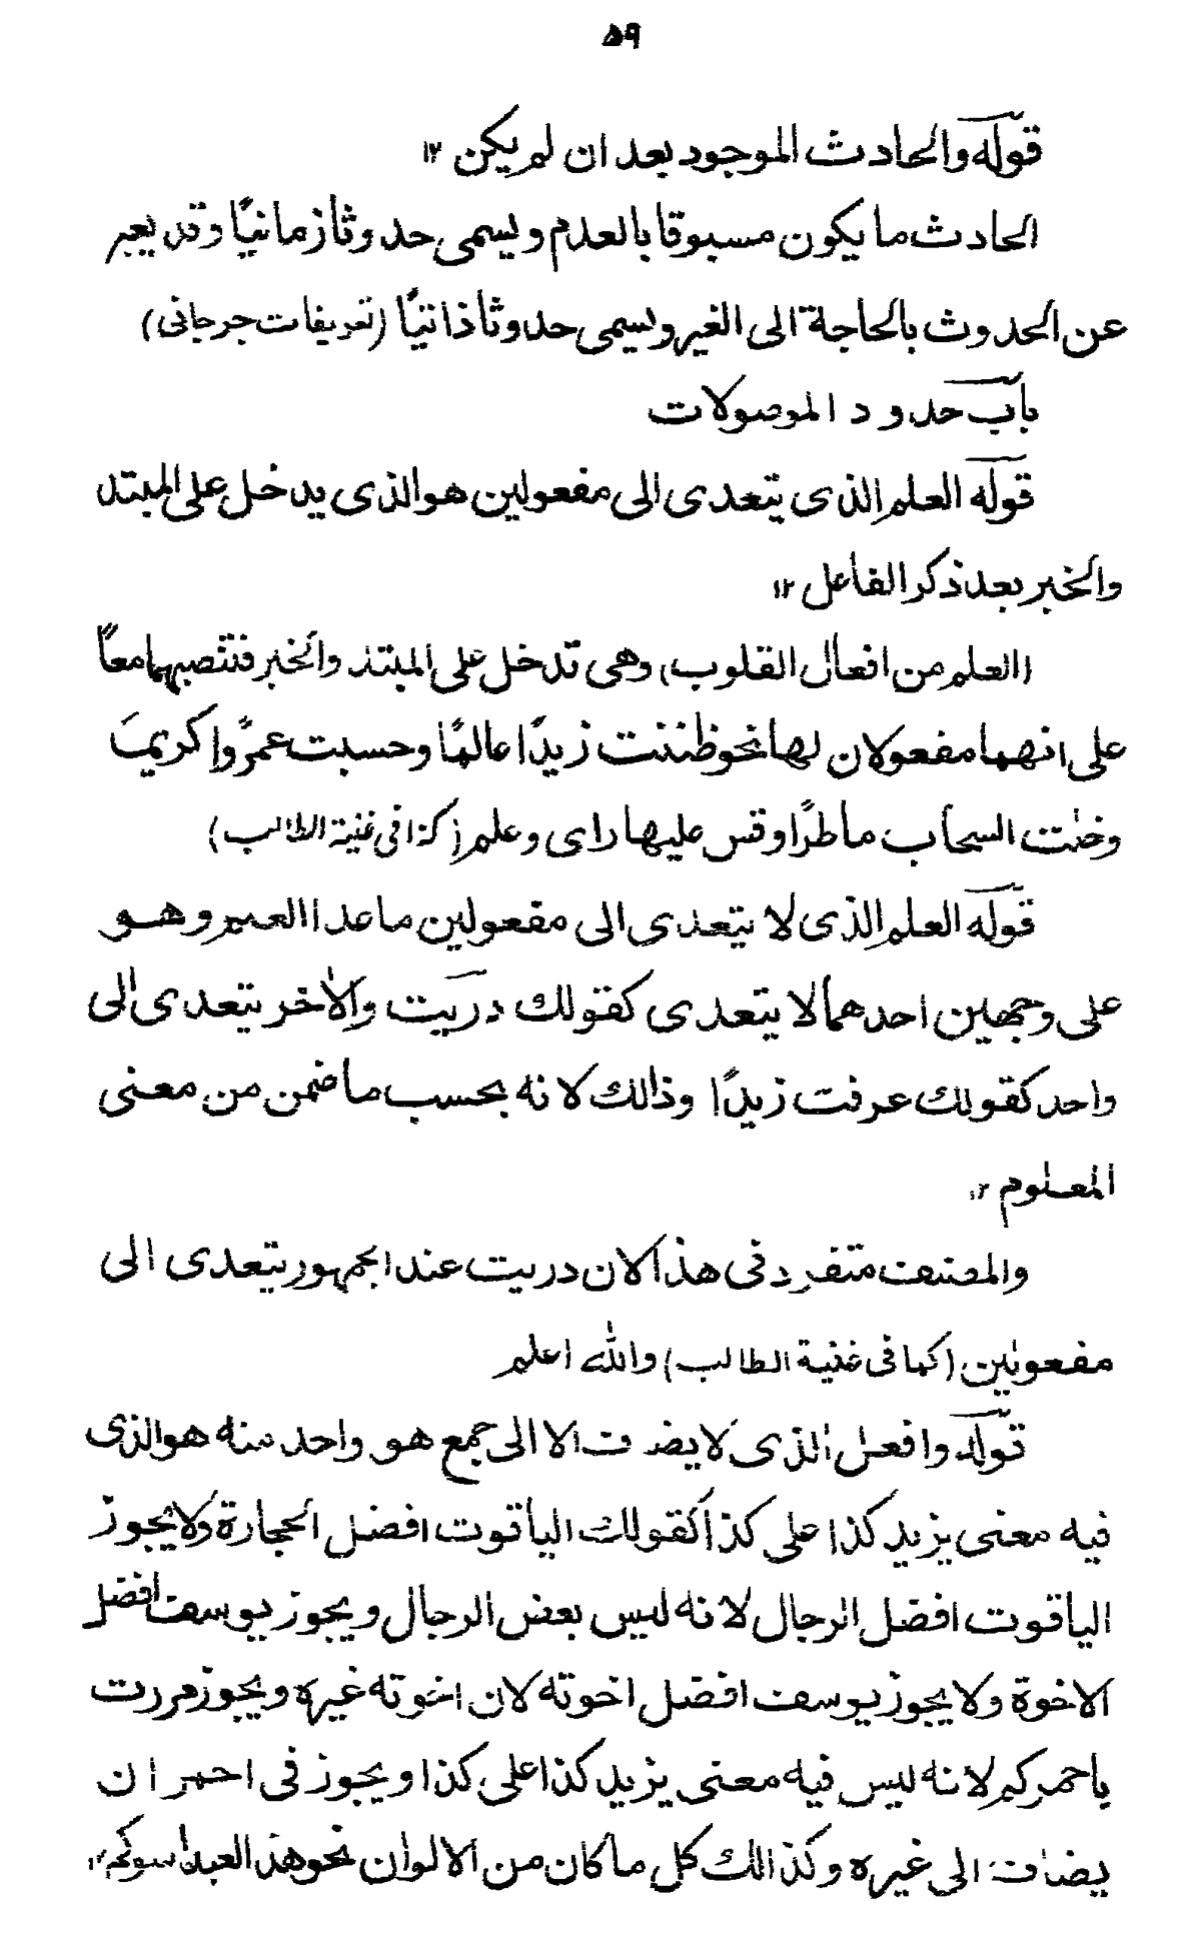 ۵۹
قوله والحادث الموجود بعد ان لم يكن ۱۲
الحادث ما يكون مسبوقا بالعدم ويسمى حدوثا زمانيًا وقد يعبر
عن الحدوث بالحاجة الى الغير ويسمى حدوثا ذاتيًا (تعريفات جرجانى)
باب حدود الموصولات
قوله العلم الذى يتعدى الى مفعولين هو الذى يدخل على المبتد
والخبر بعد ذكر الفاعل ۱۲
(العلم من افعال القلوب) وهى تدخل على المبتدا والخبر فتنصبهما معًا
على انهما مفعولان لها نحو ظننت زيدًا عالمًا وحسبت عمرًوا كريمًا
وخلت السحاب ماطرًا وقس عليها راى وعلم (كذا فى غنية الطالب)
قوله العلم الذى لا يتعدى الى مفعولين ما عدا العلم وهو
على وجهين احدهما لا يتعدى كقولك دريت والاٰخر يتعدى الى
واحد كقولك عرفت زيدًا وذالك لانه بحسب ما ضمن من معنى
المعلوم ۱۲
والمصنف متفرد فى هذا لان دريت عند الجمهور يتعدى الى
مفعولين (كما فى غنية الطالب) والله اعلم
قوله وافعل الذى لا يضاف الا الى جمع هو واحد منه هو الذى
فيه معنى يزيد كذا على كذا كقولك الياقوت افضل الحجارة ولا يجوز
الياقوت افضل الرجال لانه ليس بعض الرجال ويجوز يوسف افضل
الاخوة ولا يجوز يوسف افضل اخوته لان اخوته غيره ويجوز مررت
باحمركم لانه ليس فيه معنى يزيد كذا على كذا ويجوز فى احمر ان
يضاف الى غيره وكذالك كل ما كان من الالوان نحو هذا لعبد اسودكم ۱۲